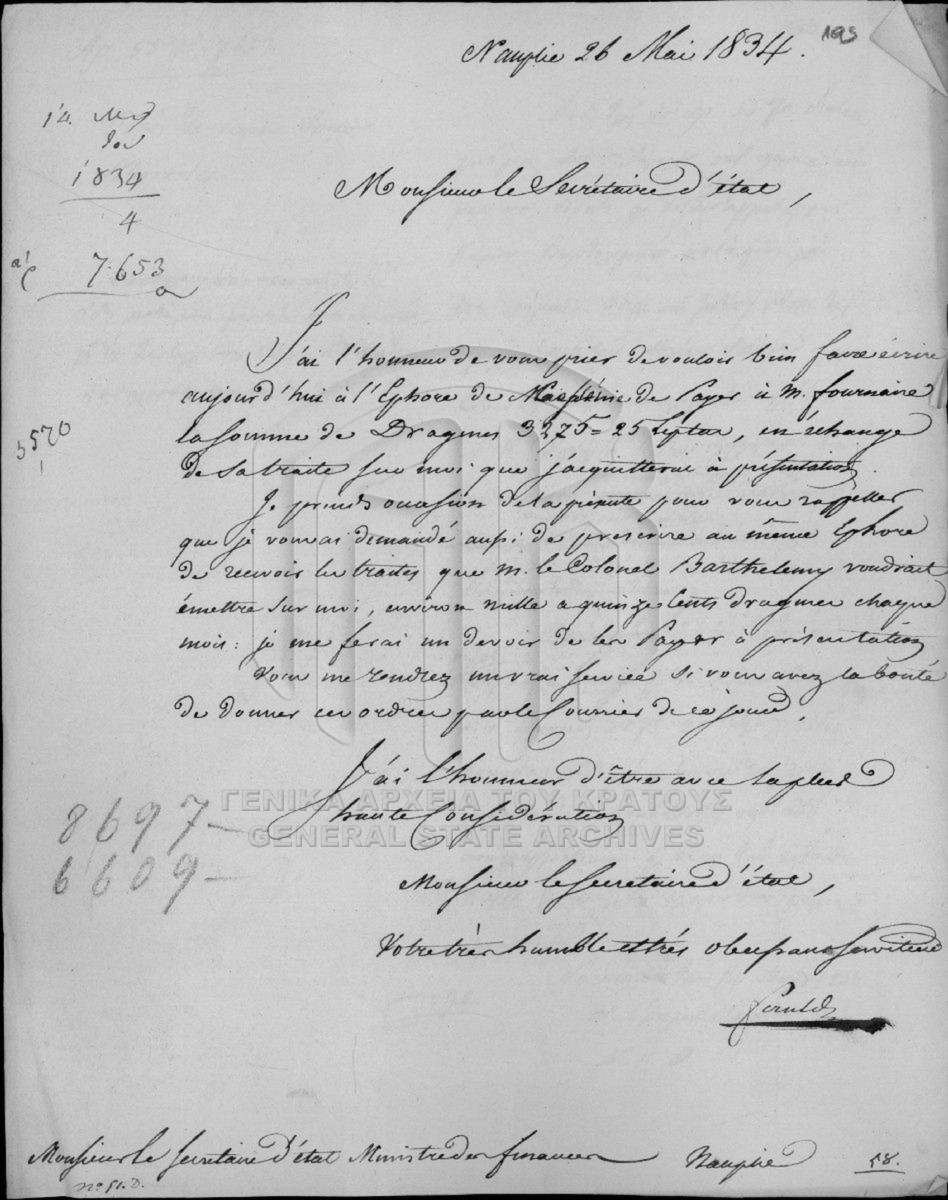 195
Nauplie 26 Mai 1834.
14.
1834
4
7.653
Monsieur le Secrétaire d'état,
J'ai l'honneur de vous prier de vouloir bien faire écrire
aujourd'hui à l'Ephore de de Payer à M. fournaire
la somme de Dragmes 3275=25 Lepta, en échange
3570
de sa traite sur moi que j'acquitterai à présentation.
Je prends occasion de la présente pour vous rappeller
que je vous ai demandé aussi de prescrire au même Ephore
de recevoir les traites que M. le Colonel Barthelemy voudrait
émettre sur moi, environ mille a quinze Cents dragmes chaque
mois: je me ferai un devoir de les Payer à présentation
Vous me rendrez un vrai service si vous avez la bonté
de donner ces ordres par le Courrier de ce jour.
J'ai l'honneur d'être avec la plus
haute Considération
ΓΕΝΙΚΑ ΑΡΧΕΙΑ ΤΟΥ ΚΡΑΤΟΥΣ
GENERAL STATE ARCHIVES
8697-
6609-
Monsieur le Secretaire d'état,
Votre très humble et très obeissant Serviteur
Monsieur le Secretaire d'état Ministre des finances Nauplie 58.
No 51. D.